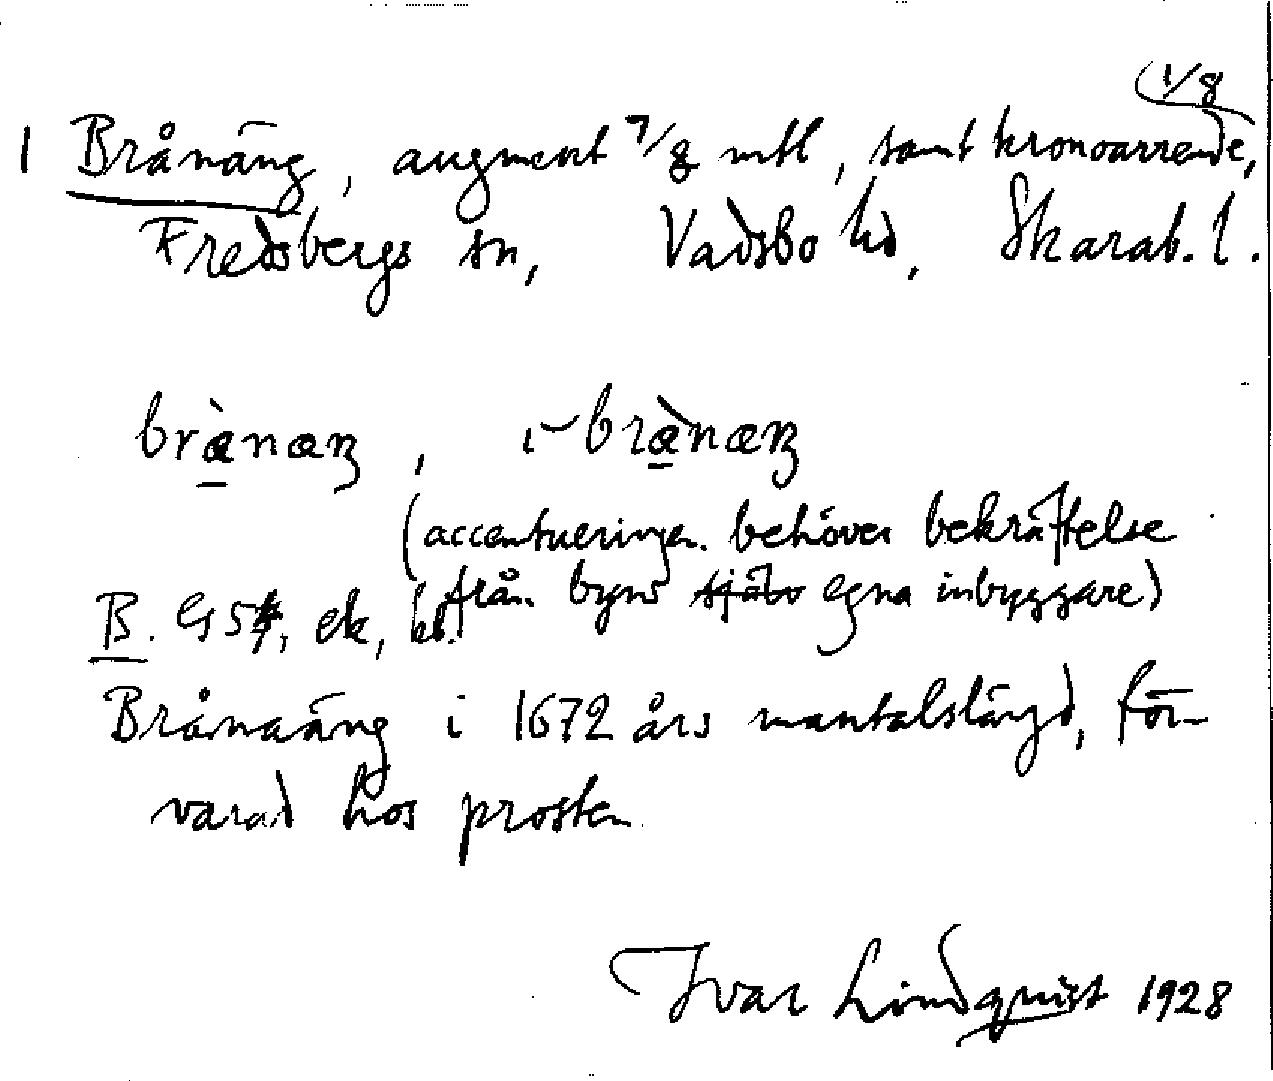 1/8
1 Brånäng, augment 7/8 mtl, samt kronoarrende,
Fredsbergs sn, Vadsbo hd, Skarab. l.
brànæŋ, i-brànæŋ
(accentueringen behöver bekräftelse
från byns själv egna inbyggare)
B. GS, ek, kb.
Brånaäng i 1672 års mantalslängd, för-
varad hos prosten
Ivar Lindquist 1928